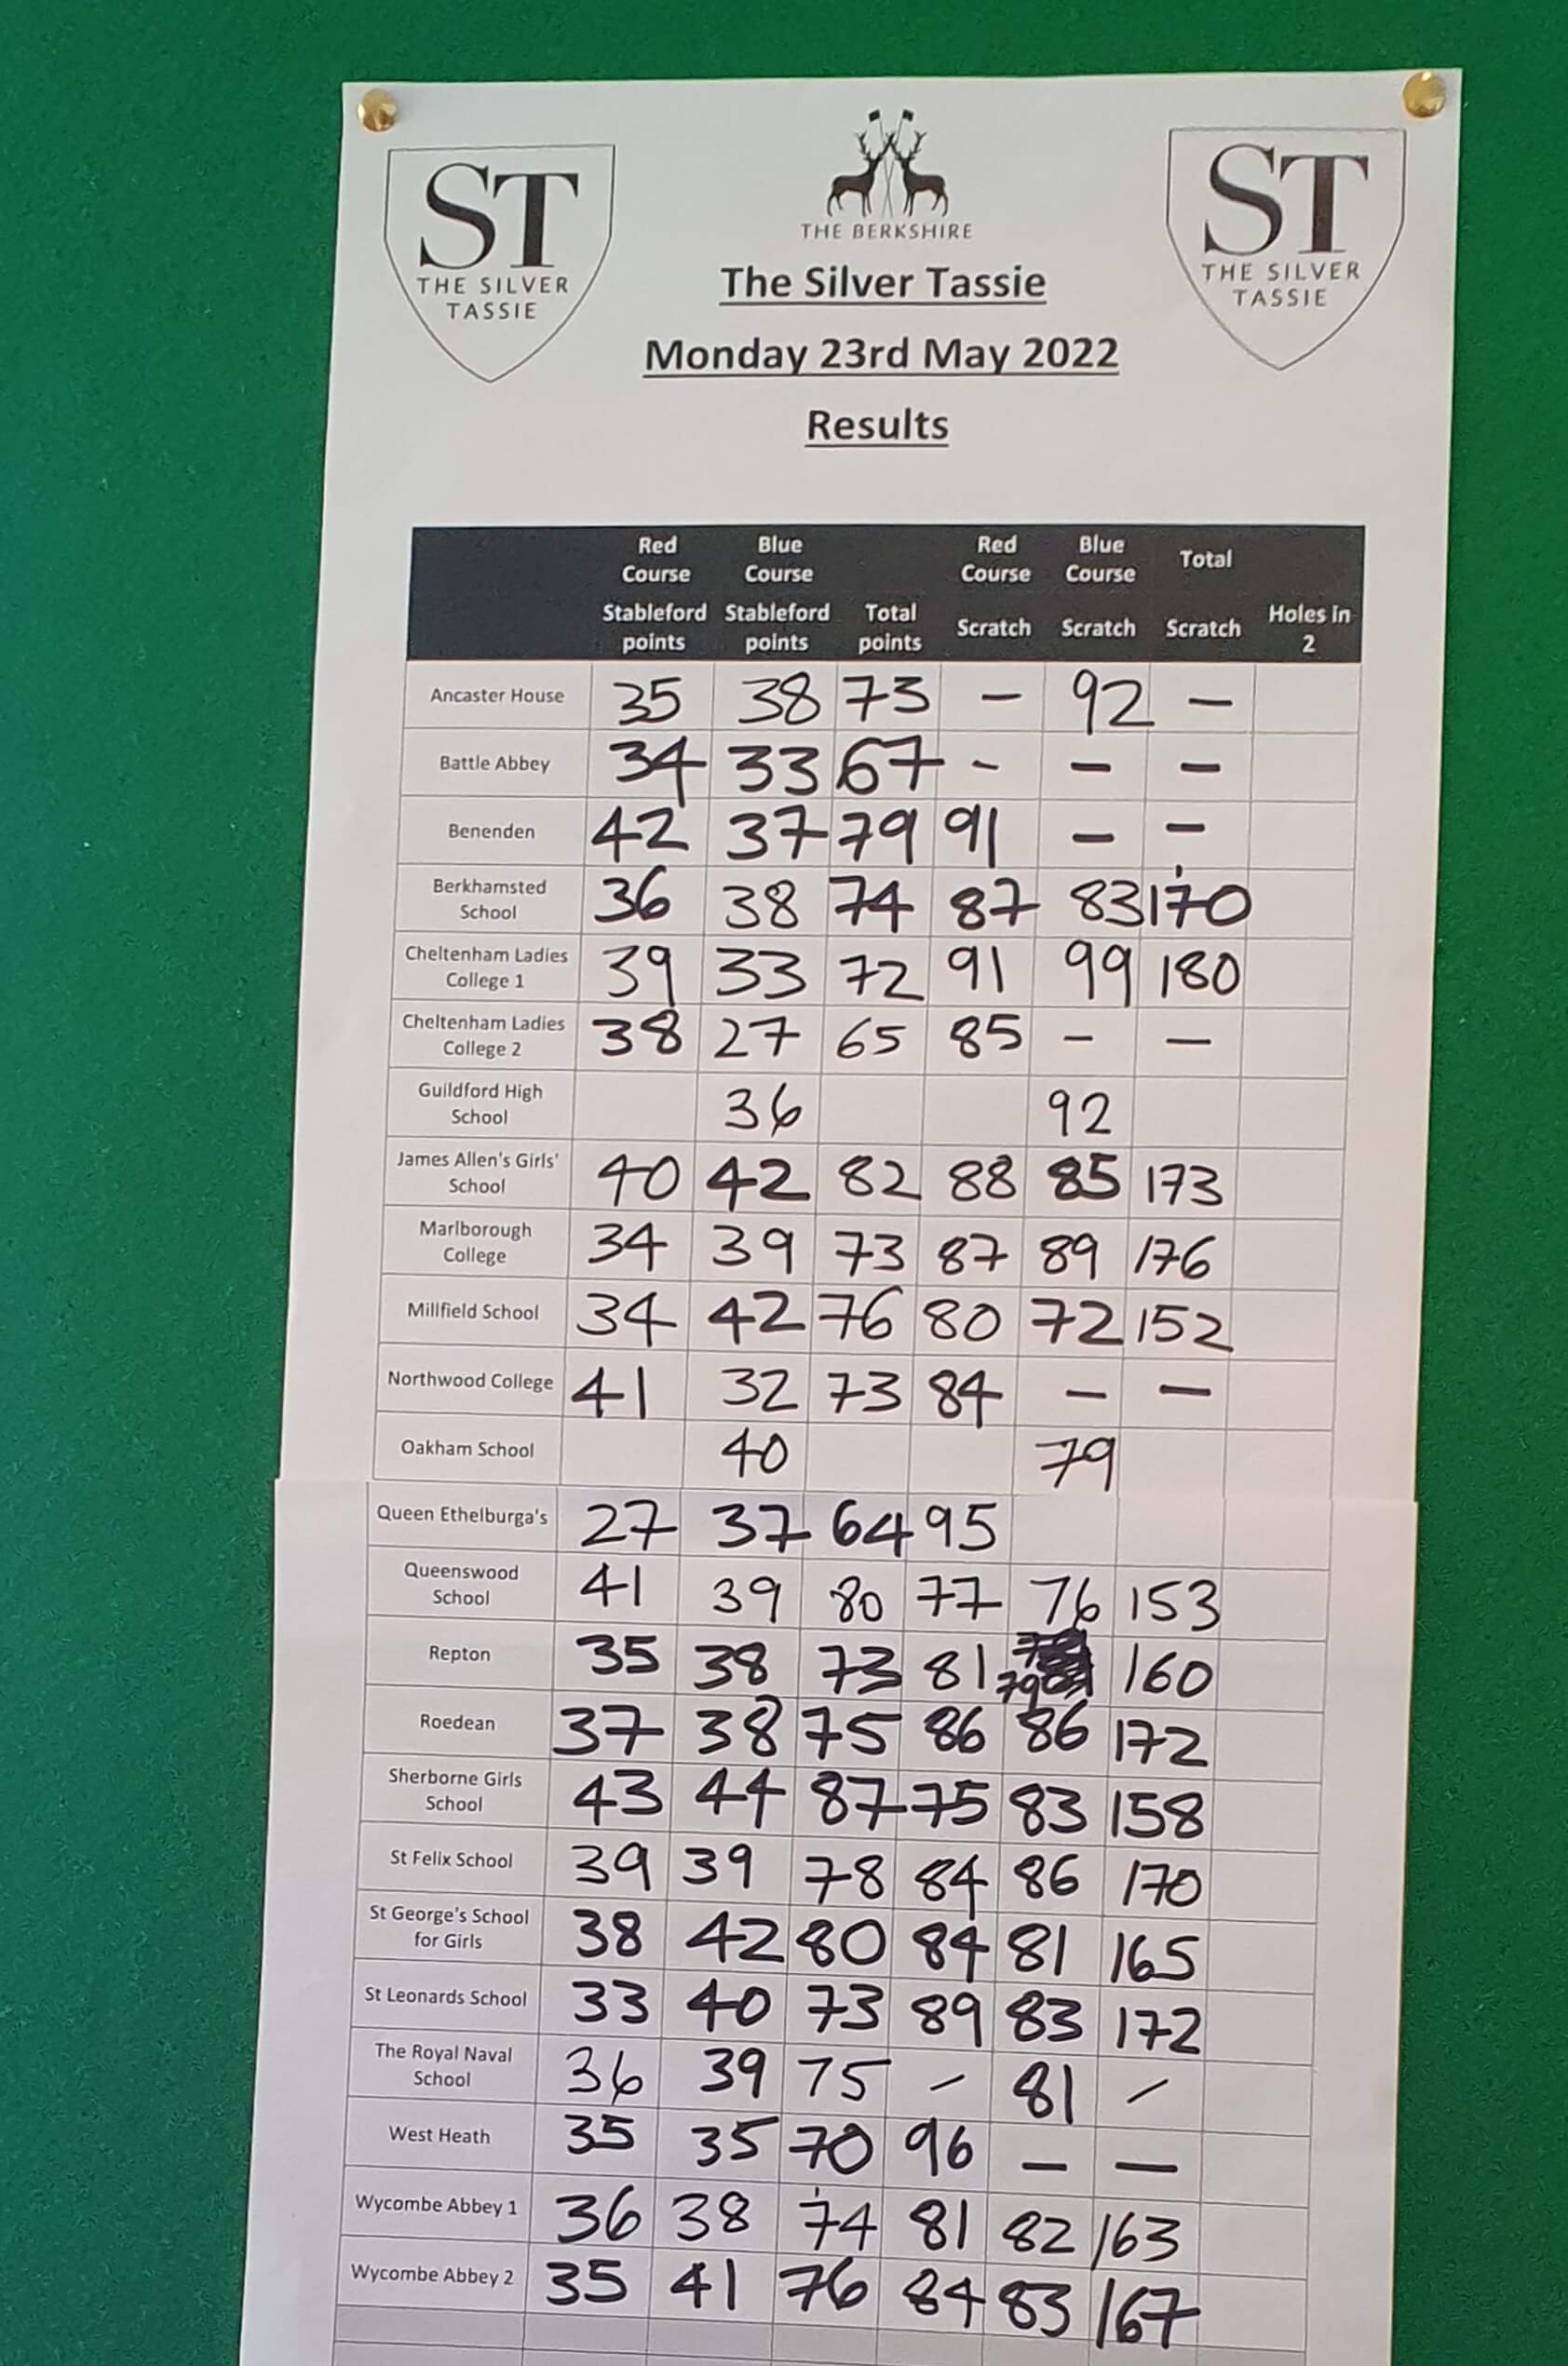 ST
THE SILVER
TASSIE
THE BERKSHIRE
ST
THE SILVER
TASSIE
The Silver Tassie
Monday 23rd May 2022
Results
Red Course Stableford points Blue Course Stableford points Total points Red Course Scratch Blue Course Scratch Total Scratch Holes in 2
Ancaster House 35 38 73 - 92 -
Battle Abbey 34 33 67 - - -
Benenden 42 37 79 91 - -
Berkhamsted School 36 38 74 87 83 170
Cheltenham Ladies College 1 39 33 72 91 99 180
Cheltenham Ladies College 2 38 27 65 85 - -
Guildford High School 36 92
James Allen's Girls' School 40 42 82 88 85 173
Marlborough College 34 39 73 87 89 176
Millfield School 34 42 76 80 72 152
Northwood College 41 32 73 84 - -
Oakham School 40 79
Queen Ethelburga's 27 37 64 95
Queenswood School 41 39 80 77 76 153
Repton 35 38 73 81 79 160
Roedean 37 38 75 86 86 172
Sherborne Girls School 43 44 87 75 83 158
St Felix School 39 39 78 84 86 170
St George's School for Girls 38 42 80 84 81 165
St Leonards School 33 40 73 89 83 172
The Royal Naval School 36 39 75 - 81 -
West Heath 35 35 70 96 - -
Wycombe Abbey 1 36 38 74 81 82 163
Wycombe Abbey 2 35 41 76 84 83 167